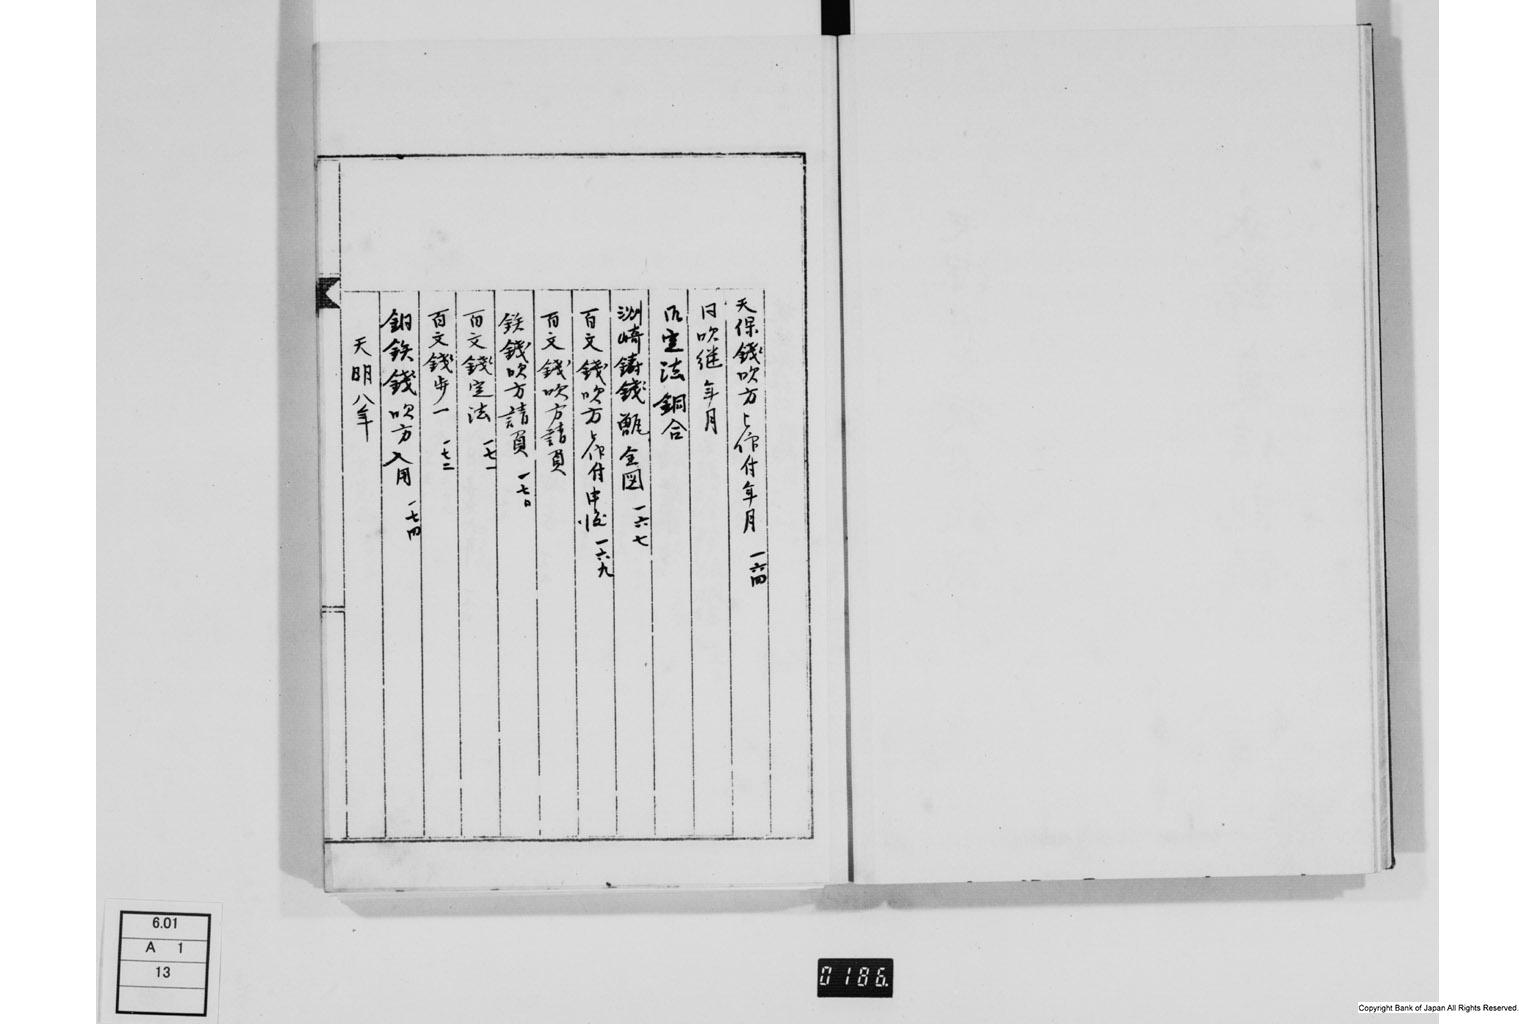 天保錢吹方被仰付年月 一六四
同吹継年月
仝定法銅合
洲崎鋳錢甑全図 一六七
百文錢吹方被仰付申渡 一六九
百文錢吹方請負
鉄錢吹方請負 一七〇
百文錢定法 一七一
百文錢歩一 一七二
銅鉄錢吹方入用 一七四
天明八年
6.01
A 1
13
0186.
Copyright Bank of Japan All Rights Reserved.